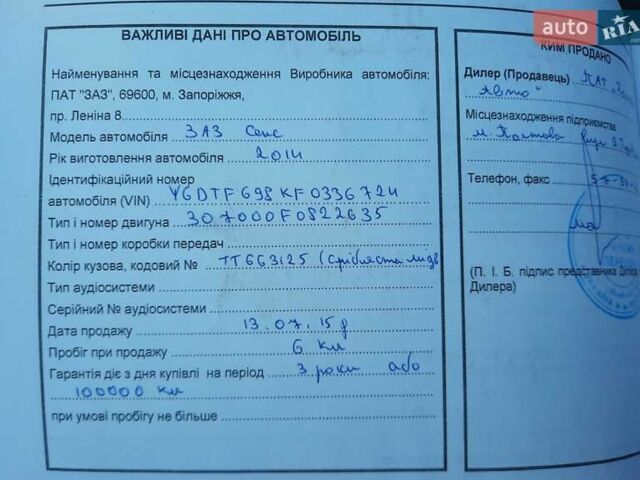 auto RIA
ВАЖЛИВІ ДАНІ ПРО АВТОМОБІЛЬ
Найменування та місцезнаходження Виробника автомобіля:
ПАТ "ЗАЗ", 69600, м. Запоріжжя,
пр. Леніна 8
Модель автомобіля ЗАЗ Сенс
Рік виготовлення автомобіля 2014
Ідентифікаційний номер
автомобіля (VIN) Y6DTF698KF0336724
Тип і номер двигуна 307000F0822635
Тип і номер коробки передач
Колір кузова, кодовий № TT663125 (срібляста
Тип аудіосистеми
Серійний № аудіосистеми
Дата продажу 13.07.15р
Пробіг при продажу 6 км
Гарантія діє з дня купівлі на період 3 роки або
100000 км
при умові пробігу не більше
КИМ ПРОДАНО
Дилер (Продавець) ПАТ
Авто"
Місцезнаходження підприємства
м. Полтава вул
Телефон, факс
(П. І. Б. підпис представника
Дилера)